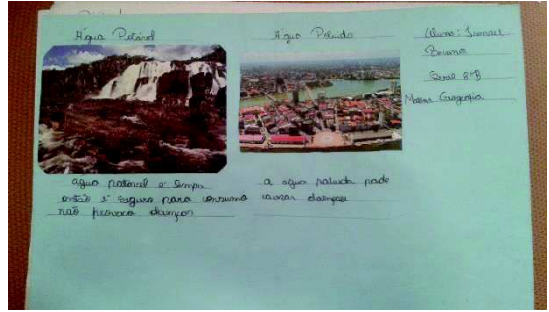 Água Potável
Água Poluida
Aluno: Ismael
Bruno
Geral 8ªB
Geografia
agua potavel e limpa
então é segura para consumo
não provoca doenças
a agua poluida pode
causar doenças